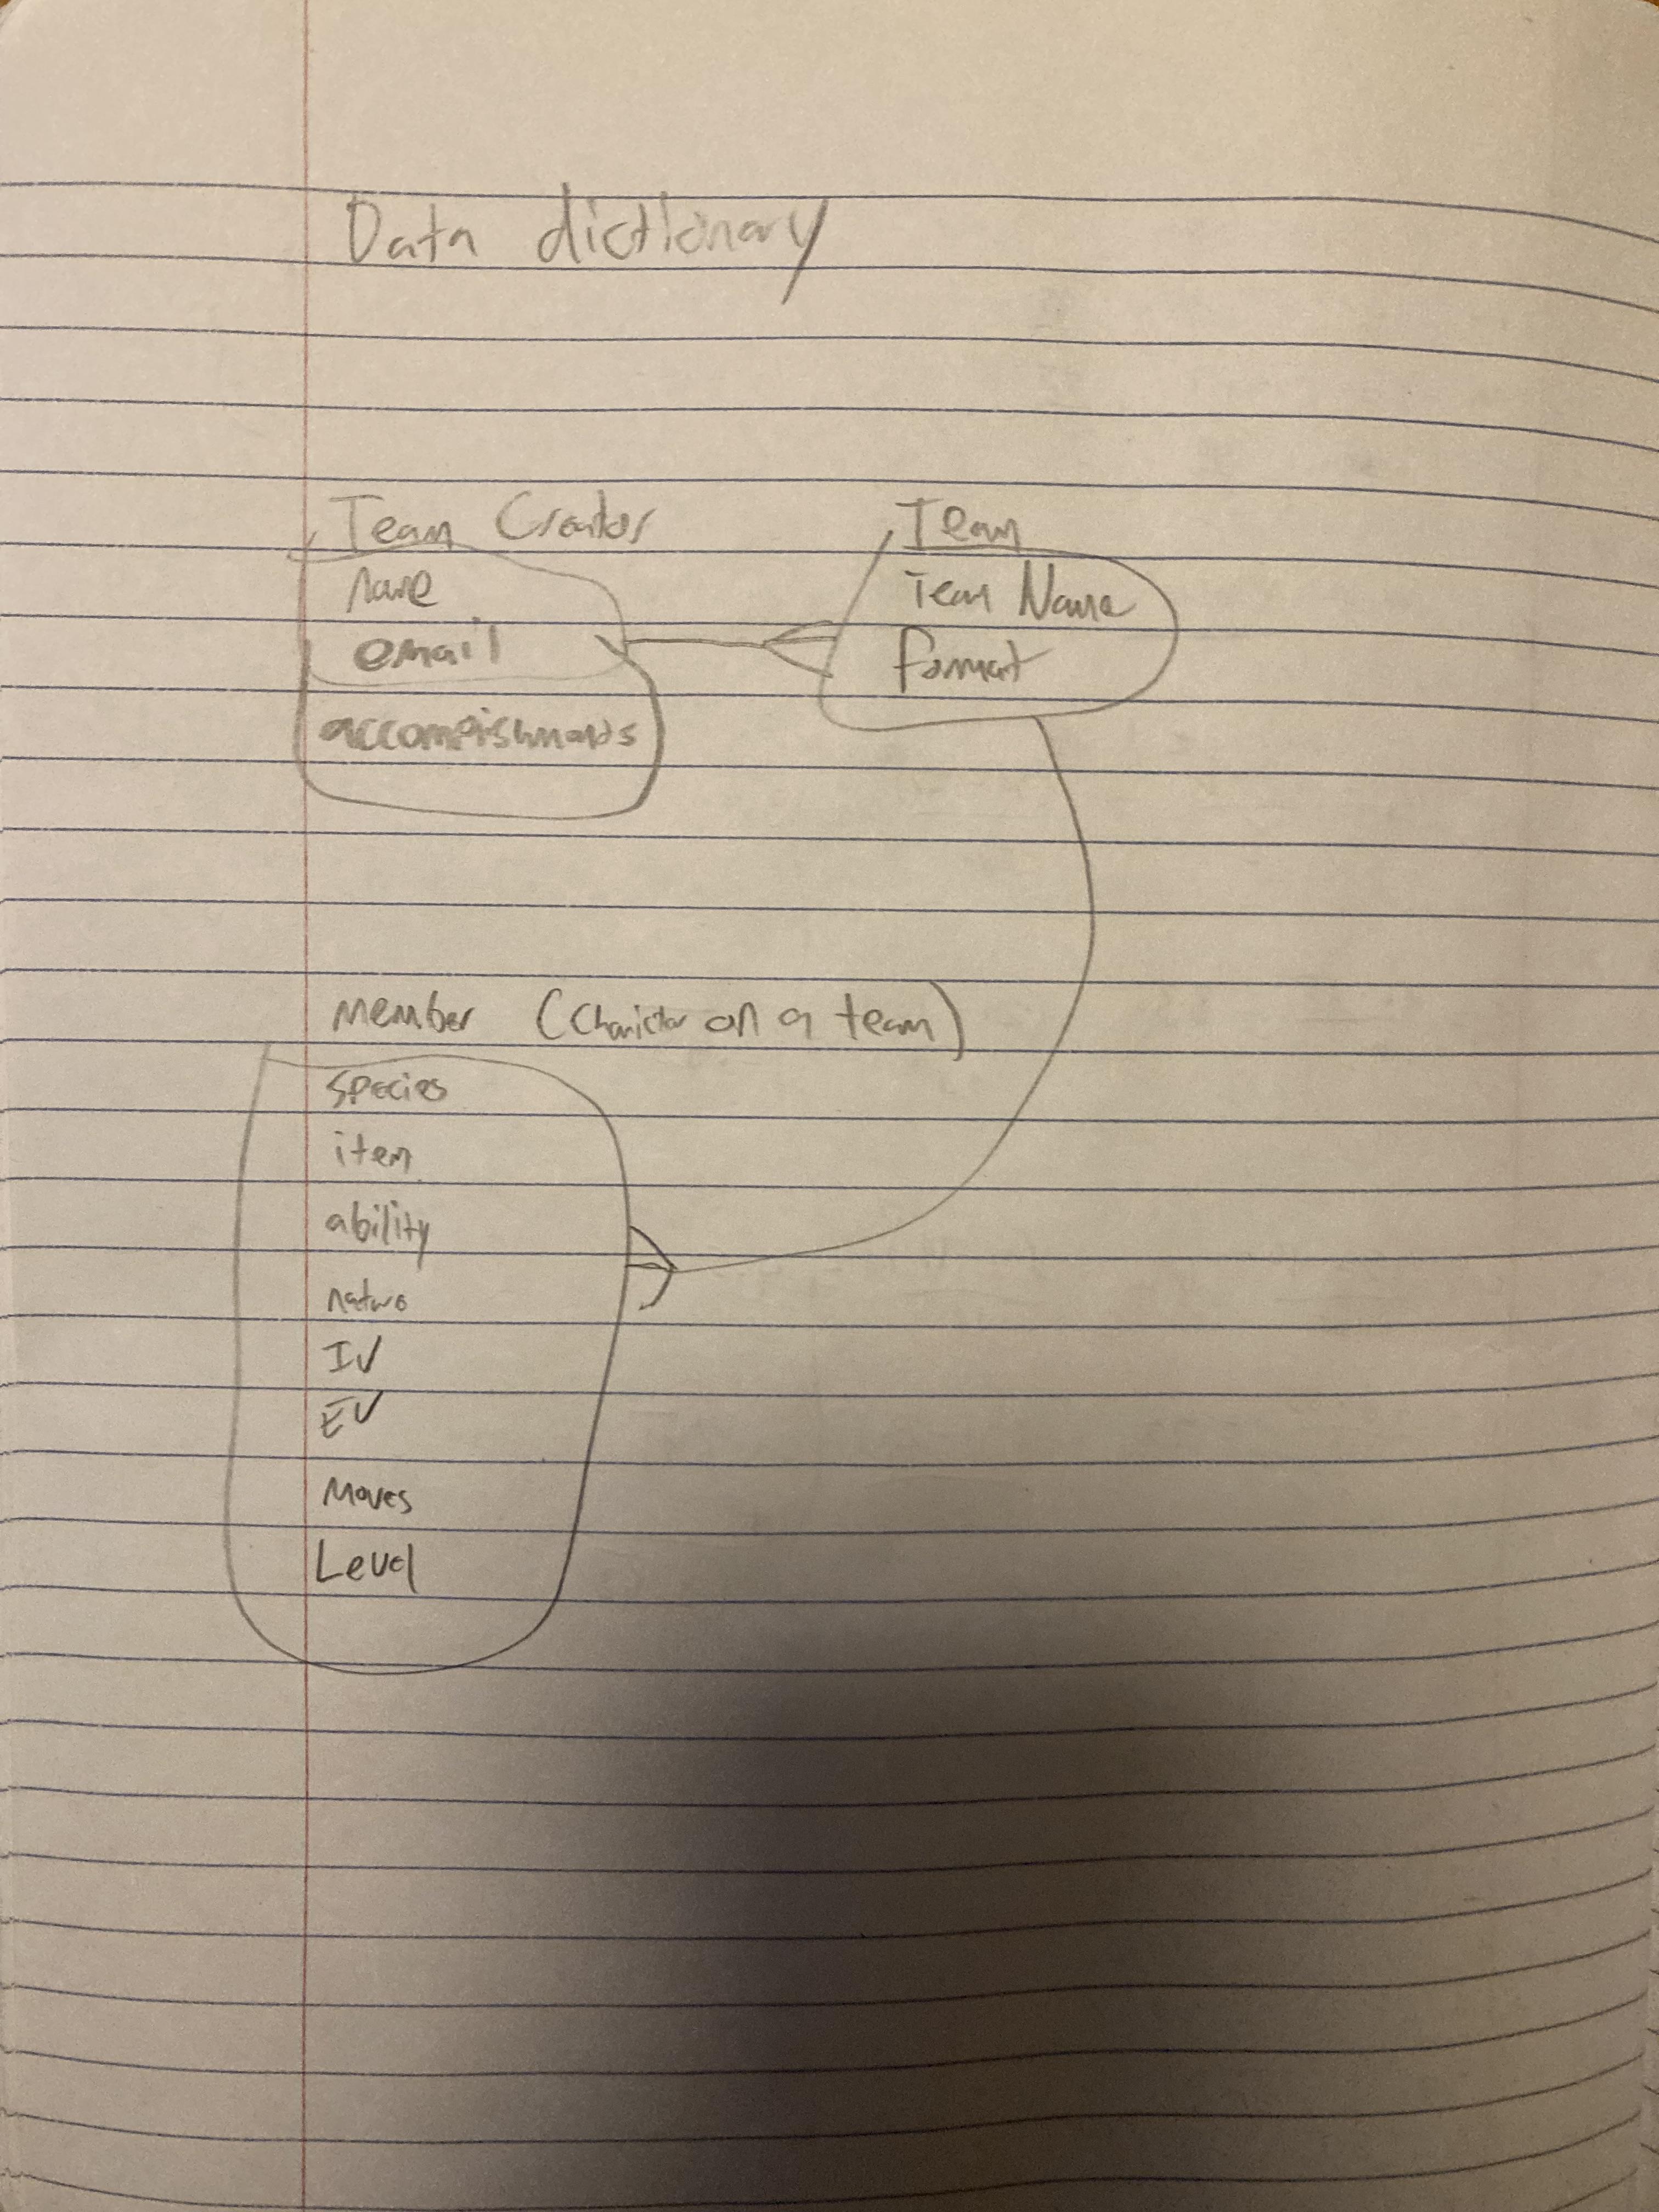 Data dictionary
Team Creator
Name
email
accompishments
Team
Team Name
Format
Member (Charictor on a team)
Species
item
ability
nature
IV
EV
Moves
Level